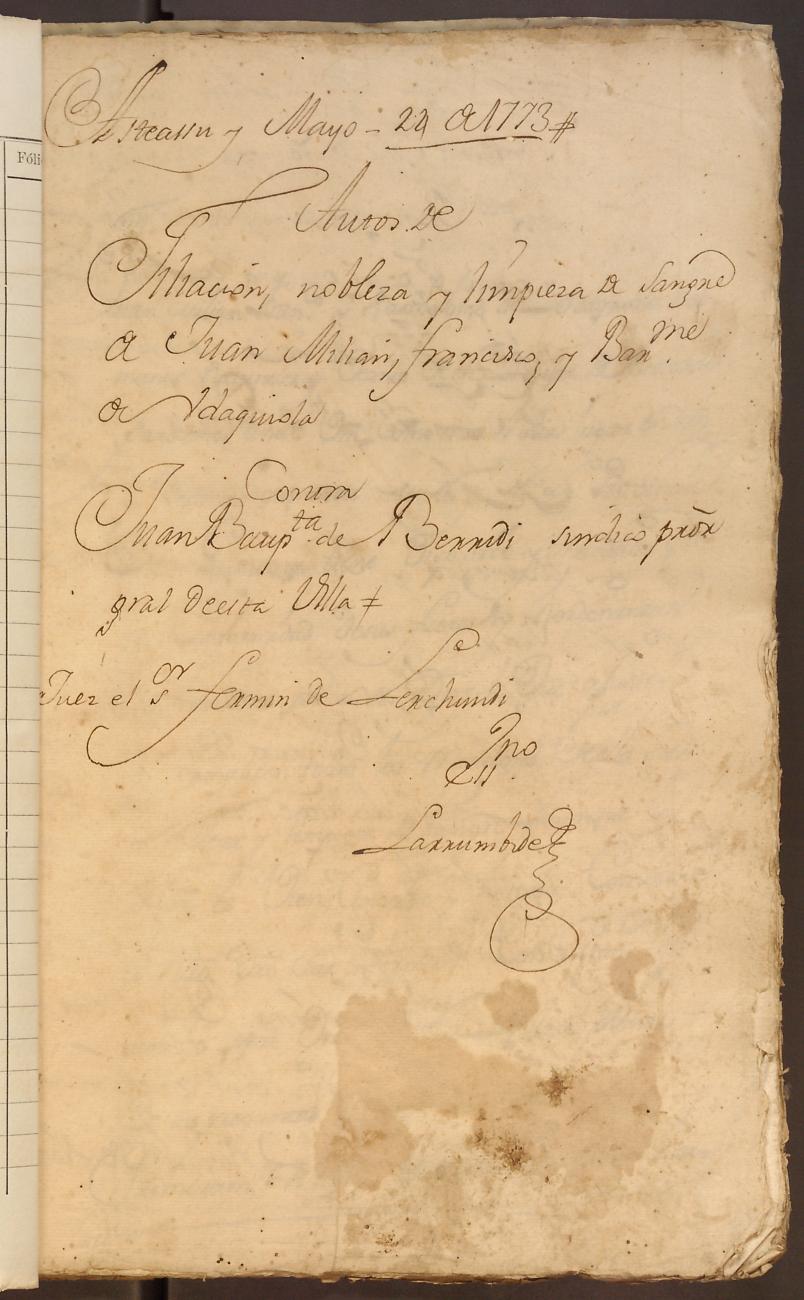 Asteasu y Mayo - 24 de 1773 #
Fóli
Autos de
Filiacion, nobleza y limpieza de Sangre
de Juan Milian, francisco, y Bar.me
de Aldaquiola
Contra
Juan Baup.ta de Berridi sindico pror
gral de esta Villa #
Juez el Sor fermin de Lerchundi
Sno
Larrumbide